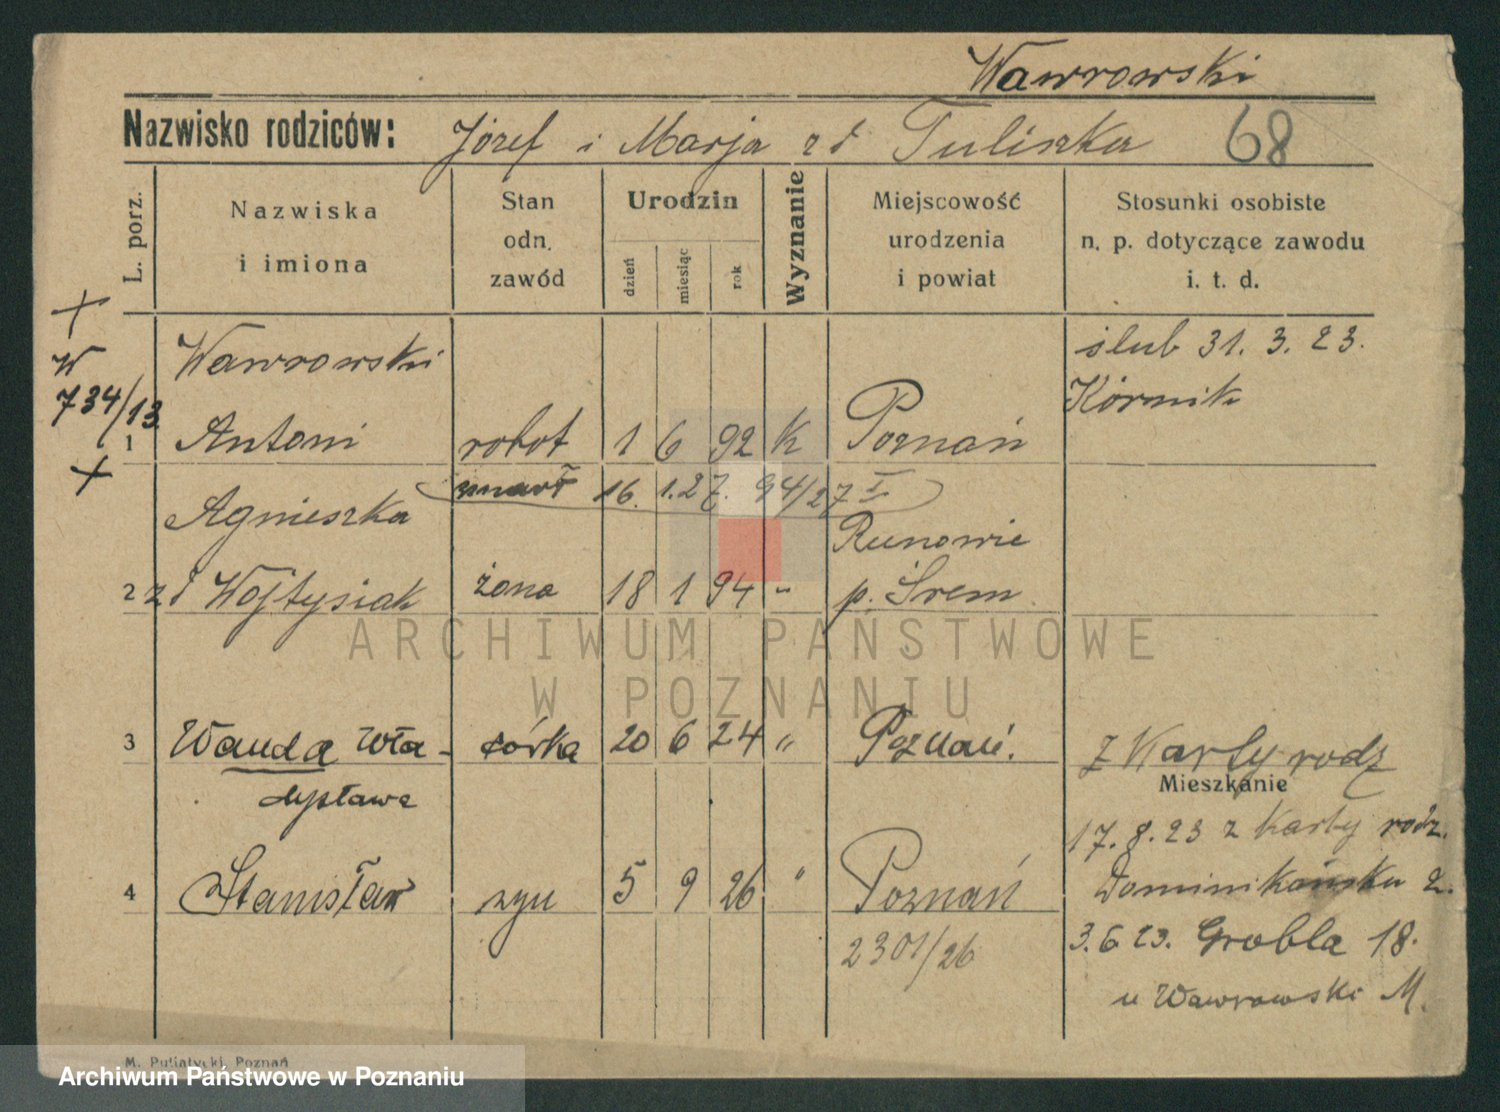 Wawrowski
Nazwisko rodziców: Józef i Marja zd Tuliszka 68
L. porz. Nazwiska i imiona Stan odn. zawód Urodzin dzień miesiąc rok Wyznanie Miejscowość urodzenia i powiat Stosunki osobiste n. p. dotyczące zawodu i. t. d.
W Wawrowski ślub 31. 3. 23.
734/13 Kórnik
1 Antoni robot 1 6 92 K Poznań
zmarł 16. 1. 27. 94/27 I
Agnieszka Runowie
2 zd Wojtysiak żona 18 1 94 - p. Śrem
ARCHIWUM PAŃSTWOWE
W POZNANIU
3 Wanda Wła- córka 20 6 24 " Poznań. Z Karty rodz
dysława Mieszkanie
17. 8. 23 z Karty rodz.
4 Stanisław syn 5 9 26 " Poznań Dominikańska 2.
2301/26 3. 6 23. Grobla 18.
u Wawrowski M.
M. Putiatycki, Poznań
Archiwum Państwowe w Poznaniu